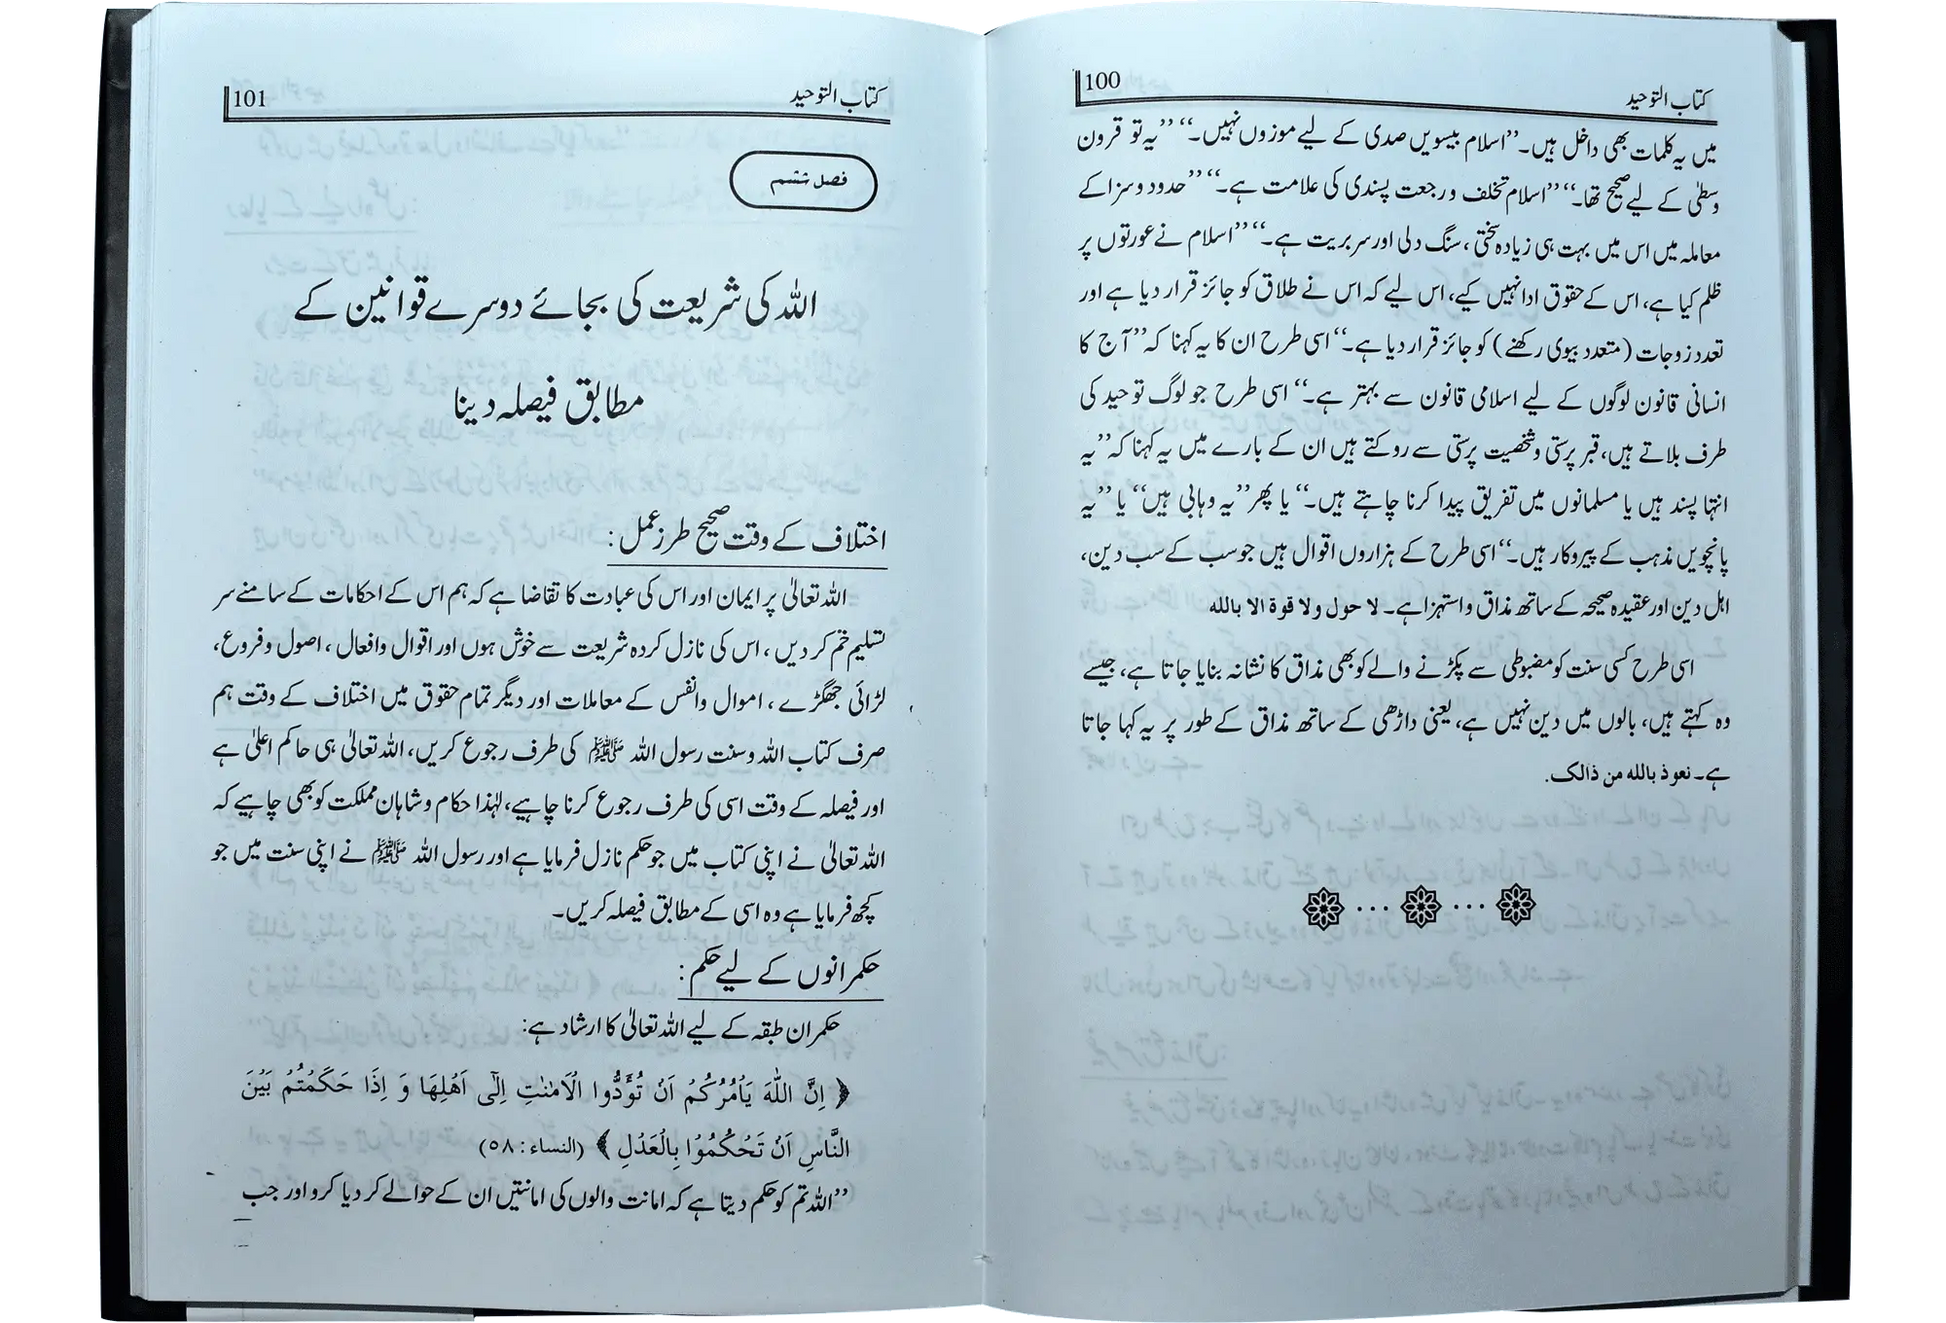 کتاب التوحید 100
میں یہ کلمات بھی داخل ہیں۔’’اسلام بیسویں صدی کے لیے موزوں نہیں۔‘‘ ’’یہ تو قرون
وسطٰی کے لیے صحیح تھا۔‘‘ ’’اسلام تخلف و رجعت پسندی کی علامت ہے۔‘‘ ’’حدود و سزا کے
معاملہ میں اس میں بہت ہی زیادہ سختی ، سنگ دلی اور سربریت ہے۔‘‘ ’’اسلام نے عورتوں پر
ظلم کیا ہے، اس کے حقوق ادا نہیں کیے، اس لیے کہ اس نے طلاق کو جائز قرار دیا ہے اور
تعدد زوجات (متعدد بیوی رکھنے) کو جائز قرار دیا ہے۔‘‘ اسی طرح ان کا یہ کہنا کہ ’’آج کا
انسانی قانون لوگوں کے لیے اسلامی قانون سے بہتر ہے۔‘‘ اسی طرح جو لوگ توحید کی
طرف بلاتے ہیں، قبر پرستی و شخصیت پرستی سے روکتے ہیں ان کے بارے میں یہ کہنا کہ ’’یہ
انتہا پسند ہیں یا مسلمانوں میں تفریق پیدا کرنا چاہتے ہیں۔‘‘ یا پھر ’’یہ وہابی ہیں‘‘ یا ’’یہ
پانچویں مذہب کے پیروکار ہیں۔‘‘ اسی طرح کے ہزاروں اقوال ہیں جو سب کے سب دین،
اہل دین اور عقیدہ صحیحہ کے ساتھ مذاق و استہزا ہے۔ لا حول ولا قوة الا بالله
اسی طرح کسی سنت کو مضبوطی سے پکڑنے والے کو بھی مذاق کا نشانہ بنایا جاتا ہے، جیسے
وہ کہتے ہیں، بالوں میں دین نہیں ہے، یعنی داڑھی کے ساتھ مذاق کے طور پر یہ کہا جاتا
ہے۔ نعوذ بالله من ذالک.
کتاب التوحید 101
فصل ششم
اللہ کی شریعت کی بجائے دوسرے قوانین کے
مطابق فیصلہ دینا
اختلاف کے وقت صحیح طرز عمل :
اللہ تعالیٰ پر ایمان اور اس کی عبادت کا تقاضا ہے کہ ہم اس کے احکامات کے سامنے سر
تسلیم خم کر دیں ، اس کی نازل کردہ شریعت سے خوش ہوں اور اقوال وافعال ، اصول و فروع،
لڑائی جھگڑے ، اموال وانفس کے معاملات اور دیگر تمام حقوق میں اختلاف کے وقت ہم
صرف کتاب اللہ وسنت رسول اللہ ﷺ کی طرف رجوع کریں، اللہ تعالیٰ ہی حاکم اعلیٰ ہے
اور فیصلہ کے وقت اسی کی طرف رجوع کرنا چاہیے، لہٰذا حکام و شاہان مملکت کو بھی چاہیے کہ
اللہ تعالیٰ نے اپنی کتاب میں جو حکم نازل فرمایا ہے اور رسول اللہ ﷺ نے اپنی سنت میں جو
کچھ فرمایا ہے وہ اسی کے مطابق فیصلہ کریں۔
حکمرانوں کے لیے حکم :
حکمران طبقہ کے لیے اللہ تعالیٰ کا ارشاد ہے:
﴿ اِنَّ اللّٰهَ يَاْمُرُكُمْ اَنْ تُؤَدُّوا الْاَمٰنٰتِ اِلٰٓى اَهْلِهَا وَ اِذَا حَكَمْتُمْ بَيْنَ
النَّاسِ اَنْ تَحْكُمُوْا بِالْعَدْلِ ﴾ (النساء : ٥٨)
’’اللہ تم کو حکم دیتا ہے کہ امانت والوں کی امانتیں ان کے حوالے کر دیا کرو اور جب